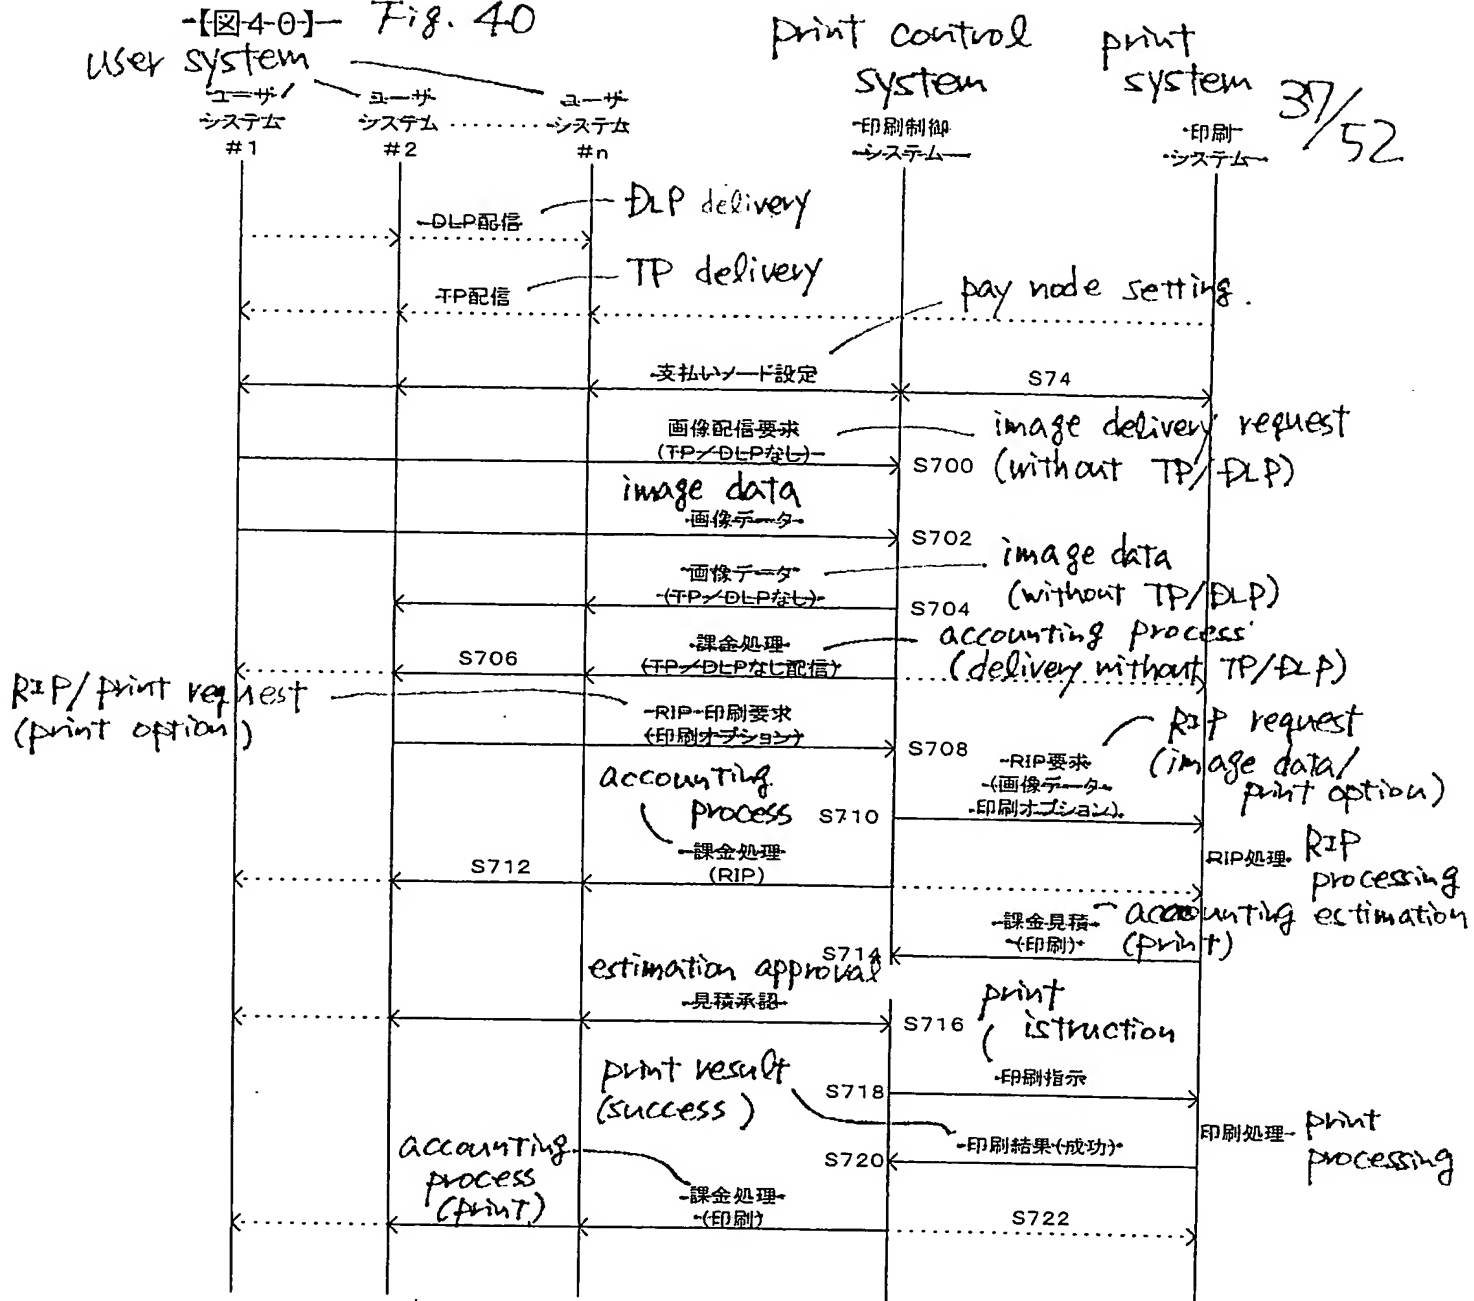 【図40】 Fig. 40
user system
print control
system
print
system
37/52
ユーザ
システム
#1
ユーザ
システム
#2
ユーザ
システム
#n
印刷制御
システム
印刷
システム
DLP配信
DLP delivery
TP配信
TP delivery
pay node setting.
支払いノード設定
S74
画像配信要求
(TP/DLPなし)
S700
image delivery request
(without TP/DLP)
image data
画像データ
S702
画像データ
(TP/DLPなし)
S704
image data
(without TP/DLP)
課金処理
(TP/DLPなし配信)
S706
accounting process
(delivery without TP/DLP)
RIP/print request
(print option)
RIP・印刷要求
(印刷オプション)
S708
RIP要求
(画像データ
印刷オプション)
S710
RIP request
(image data/
print option)
accounting
process
課金処理
(RIP)
S712
RIP処理
RIP
processing
課金見積
(印刷)
S714
accounting estimation
(print)
estimation approval
見積承認
S716
print
istruction
印刷指示
S718
print result
(success)
印刷処理
print
processing
印刷結果(成功)
S720
accounting
process
(print)
課金処理
(印刷)
S722